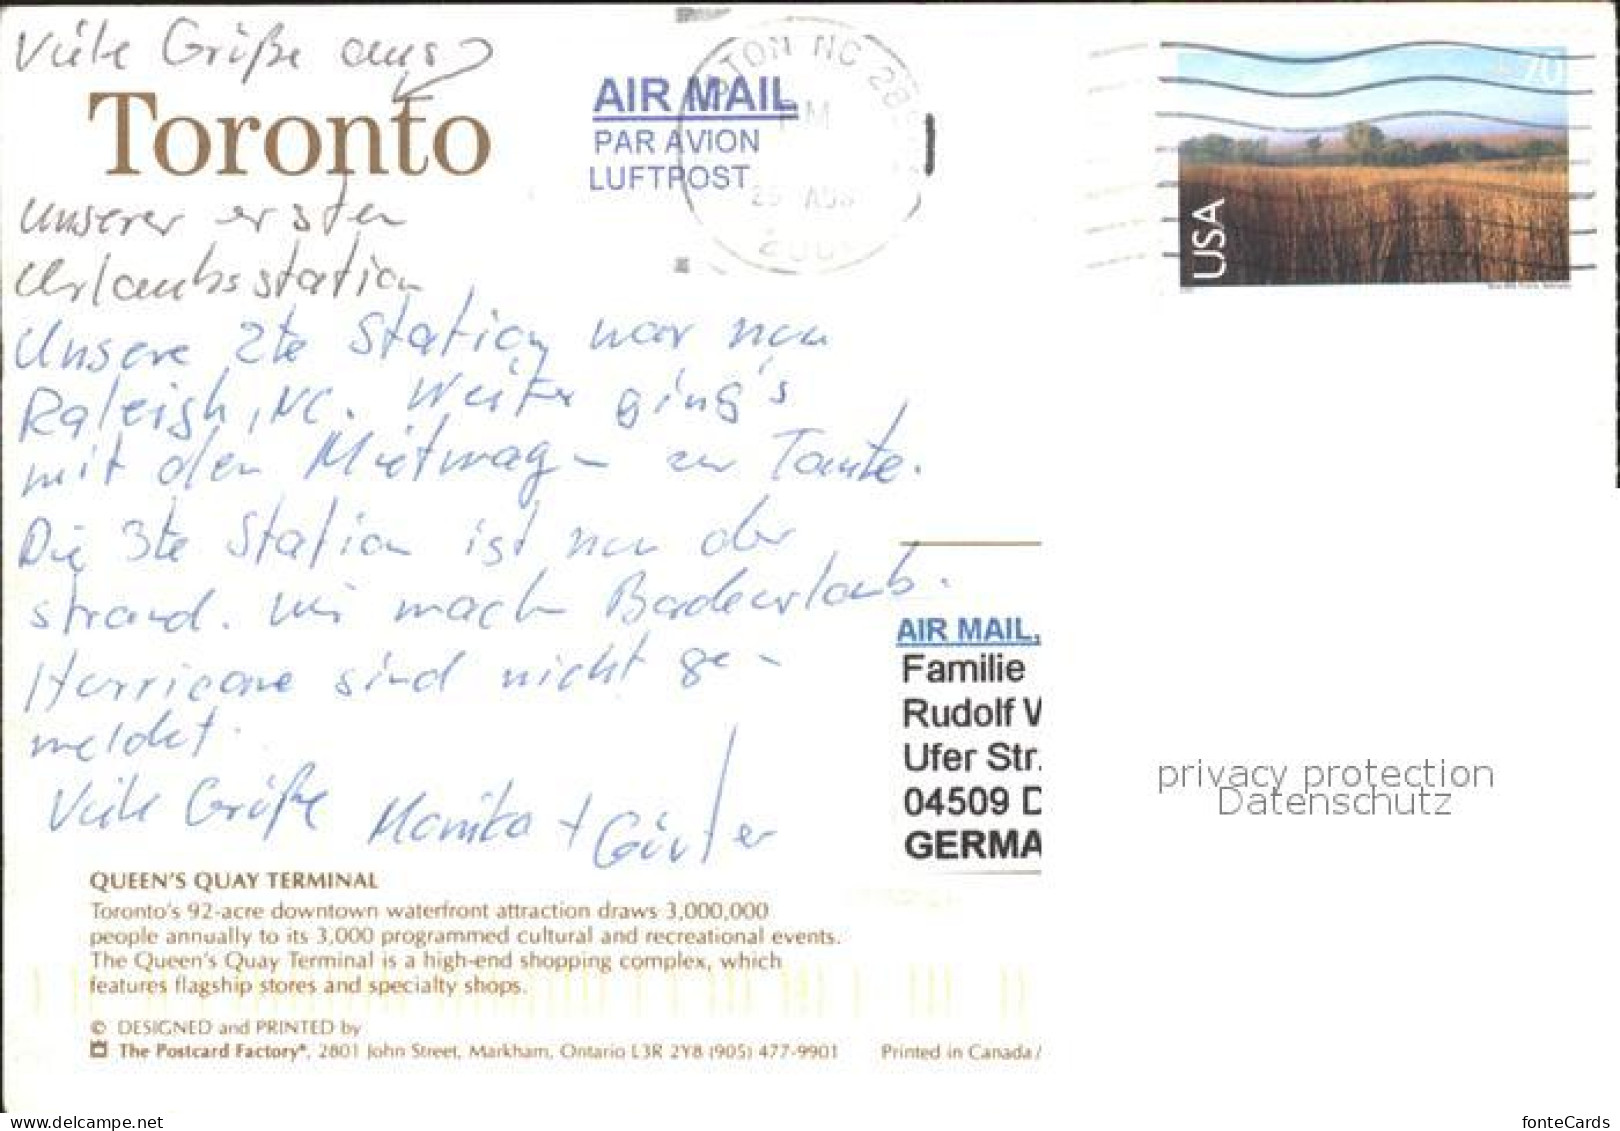 Viele Grüße aus
Toronto
Unserer ersten
Urlaubsstation
Unsere 2te Station war nun
Raleigh, NC. Weiter ging's
mit den Mietwagen zur Tante.
Die 3te Station ist nun der
strand. Wir machen Badeurlaub.
Hurricane sind nicht ge-
meldet.
Viele Grüße Monika + Günter
AIR MAIL
PAR AVION
LUFTPOST
TON NC 28
PM
25 AUG
70
USA
AIR MAIL,
Familie
Rudolf
Ufer Str.
04509 D
GERMA
privacy protection
Datenschutz
QUEEN'S QUAY TERMINAL
Toronto's 92-acre downtown waterfront attraction draws 3,000,000
people annually to its 3,000 programmed cultural and recreational events.
The Queen's Quay Terminal is a high-end shopping complex, which
features flagship stores and specialty shops.
© DESIGNED and PRINTED by
The Postcard Factory®, 2801 John Street, Markham, Ontario L3R 2Y8 (905) 477-9901
Printed in Canada/
www.delcampe.net
fonteCards